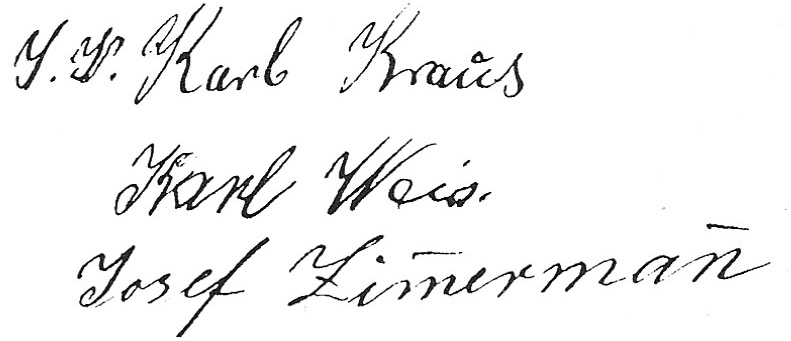 J. P. Karl Kraus
Karl Weis.
Josef Zim̄erman̄